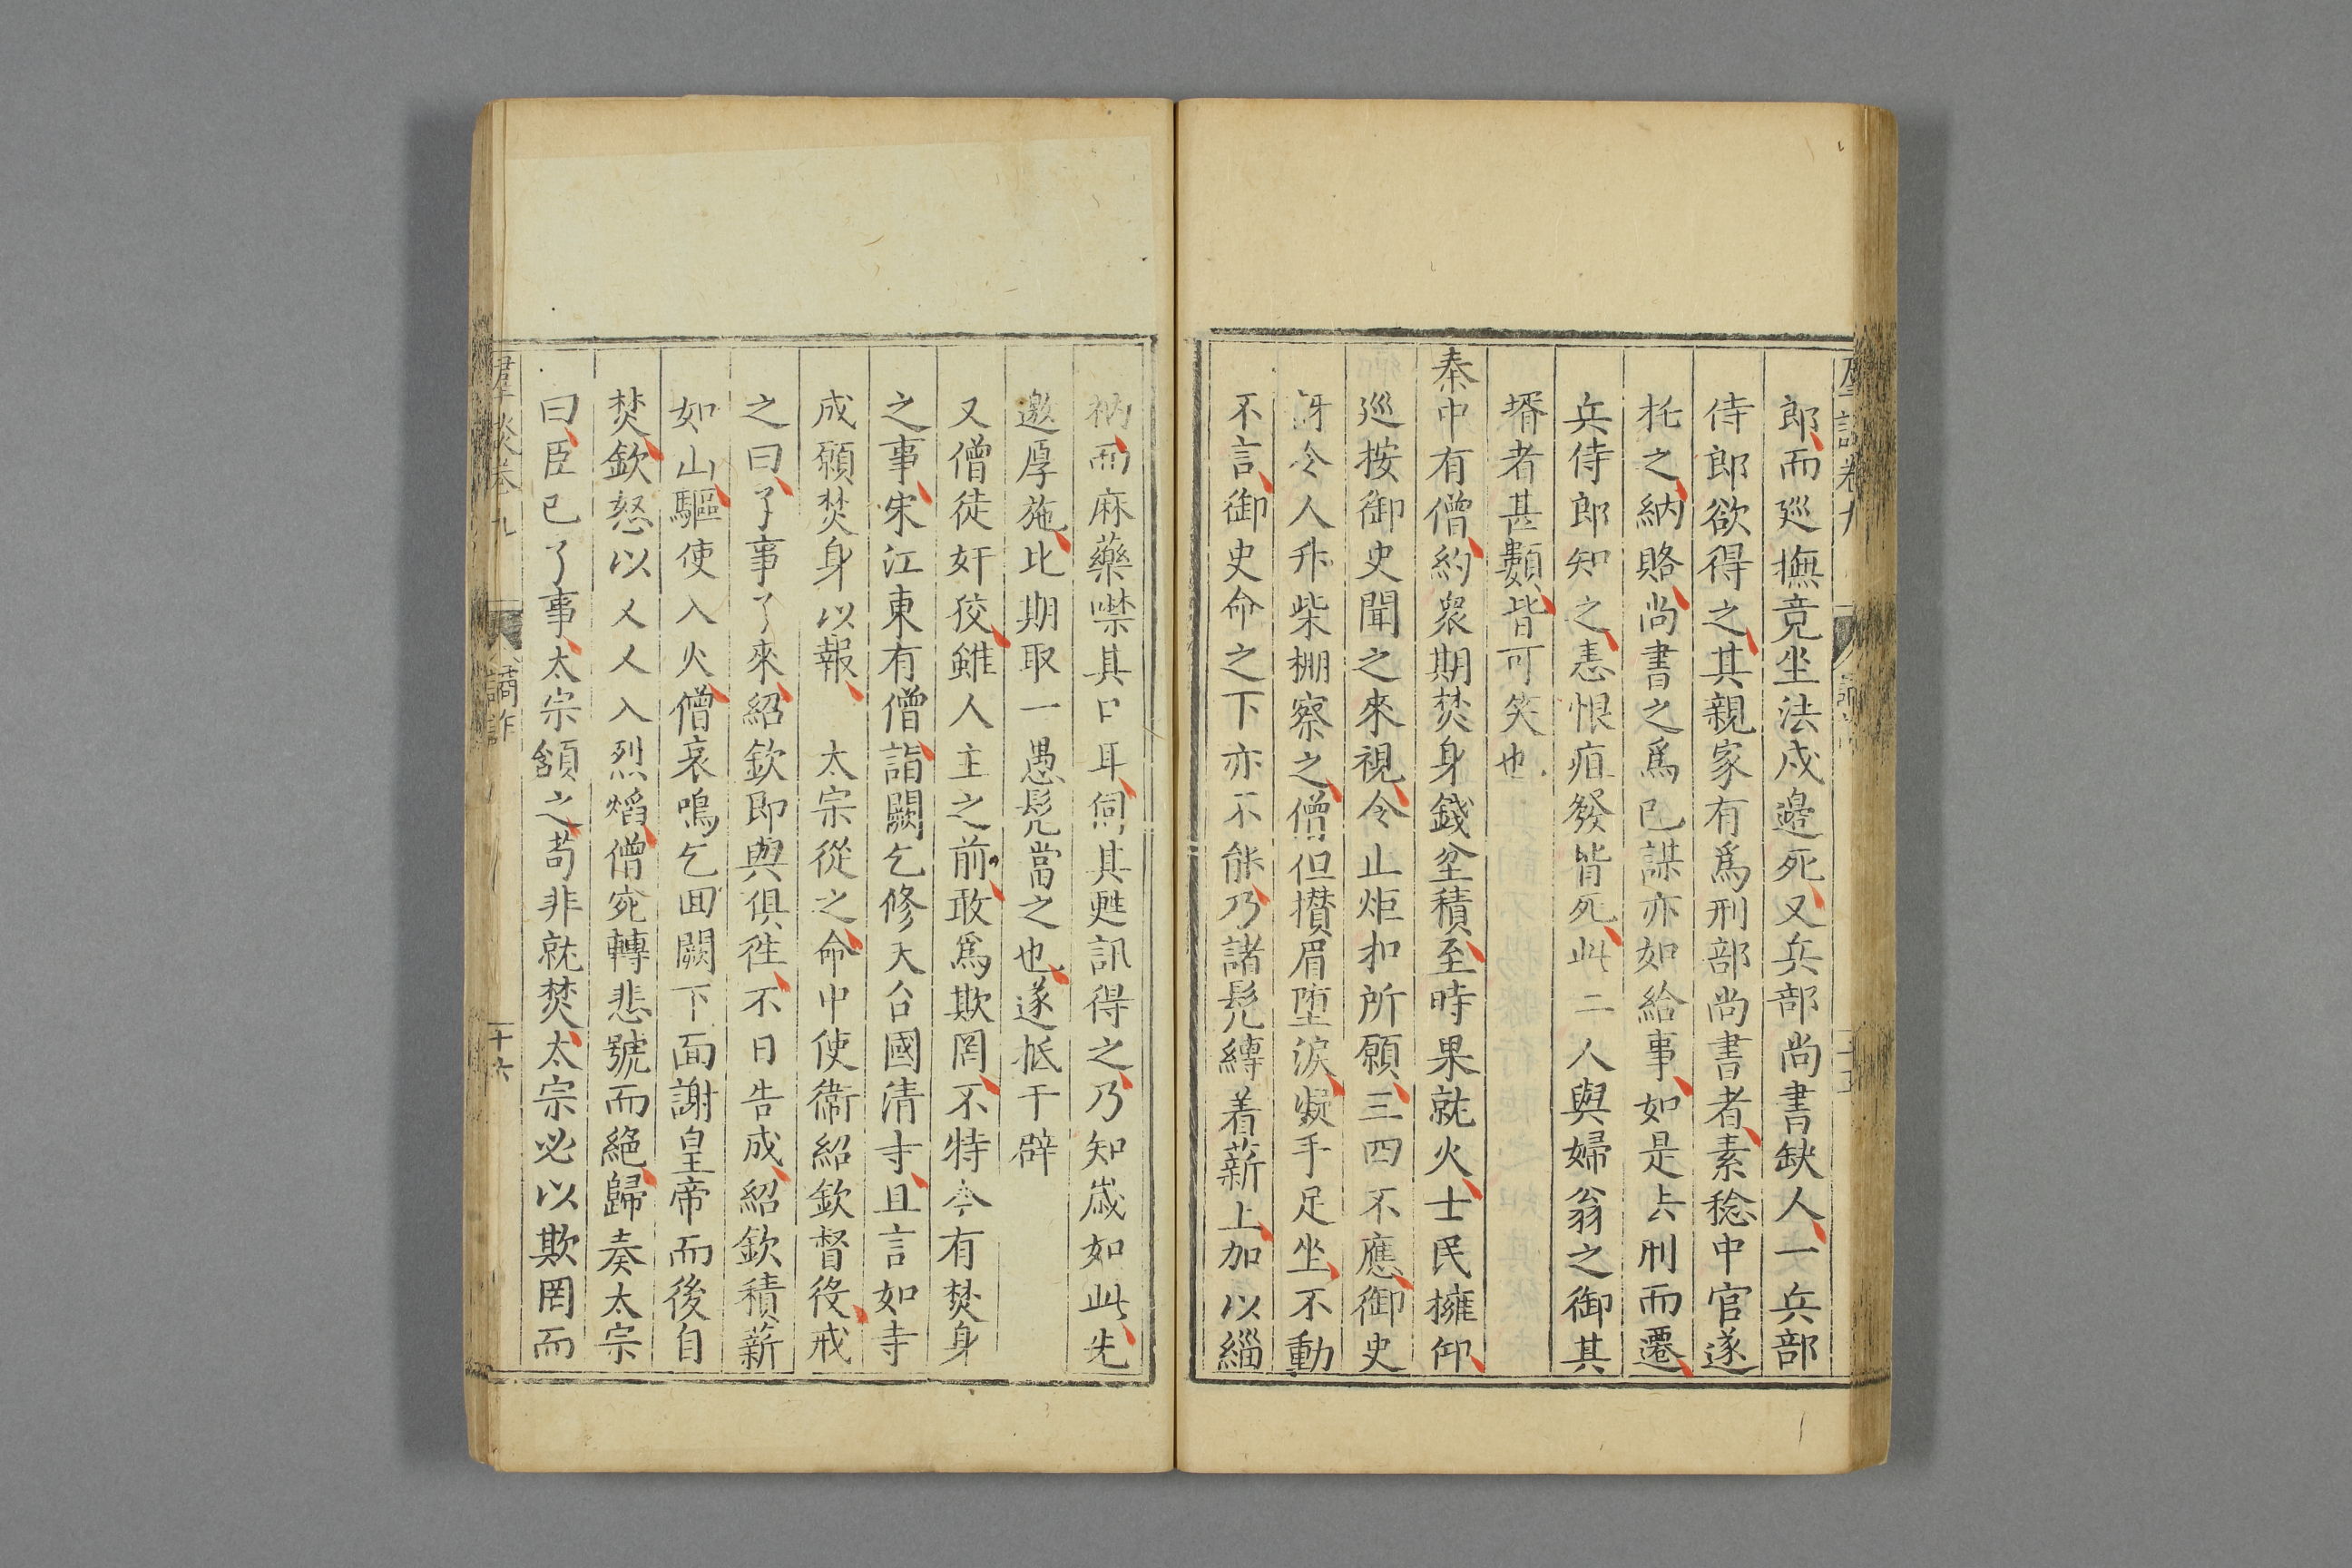 郎而廵撫竟坐法戍邉死又兵部尚書缺人一兵部
侍郎欲得之其親家有爲刑部尚書者素稔中官遂
托之納賂尚書之爲巳謀亦如給事如是去刑而遷
兵侍郎知之恚恨疽發背死此二人與婦翁之御其
壻者甚𩔖皆可笑也
秦中有僧約衆期焚身錢坌積至時果就火士民擁仰
廵按御史聞之來視令止炬扣所願三四不應御史
訝令人升柴棚察之僧但攅眉墮淚凝手足坐不動
不言御史命之下亦不能乃諸髠縛着薪上加以緇
衲而麻藥噤其口耳伺其甦訊得之乃知歳如此先
邀厚施比期取一愚髠當之也遂抵于辟
又僧徒奸狡雖人主之前敢爲欺罔不特今有焚身
之事宋江東有僧詣闕乞修天台國清寺且言如寺
成願焚身以報 太宗從之命中使衞紹欽督役戒
之曰了事了來紹欽即與俱徃不日告成紹欽積薪
如山驅使入火僧哀鳴乞回闕下面謝皇帝而後自
焚欽怒以乂乂入烈熖僧宛轉悲號而絕歸奏太宗
曰臣已了事太宗頷之苟非就焚太宗必以欺罔而
羣談卷九
譎詐
十六